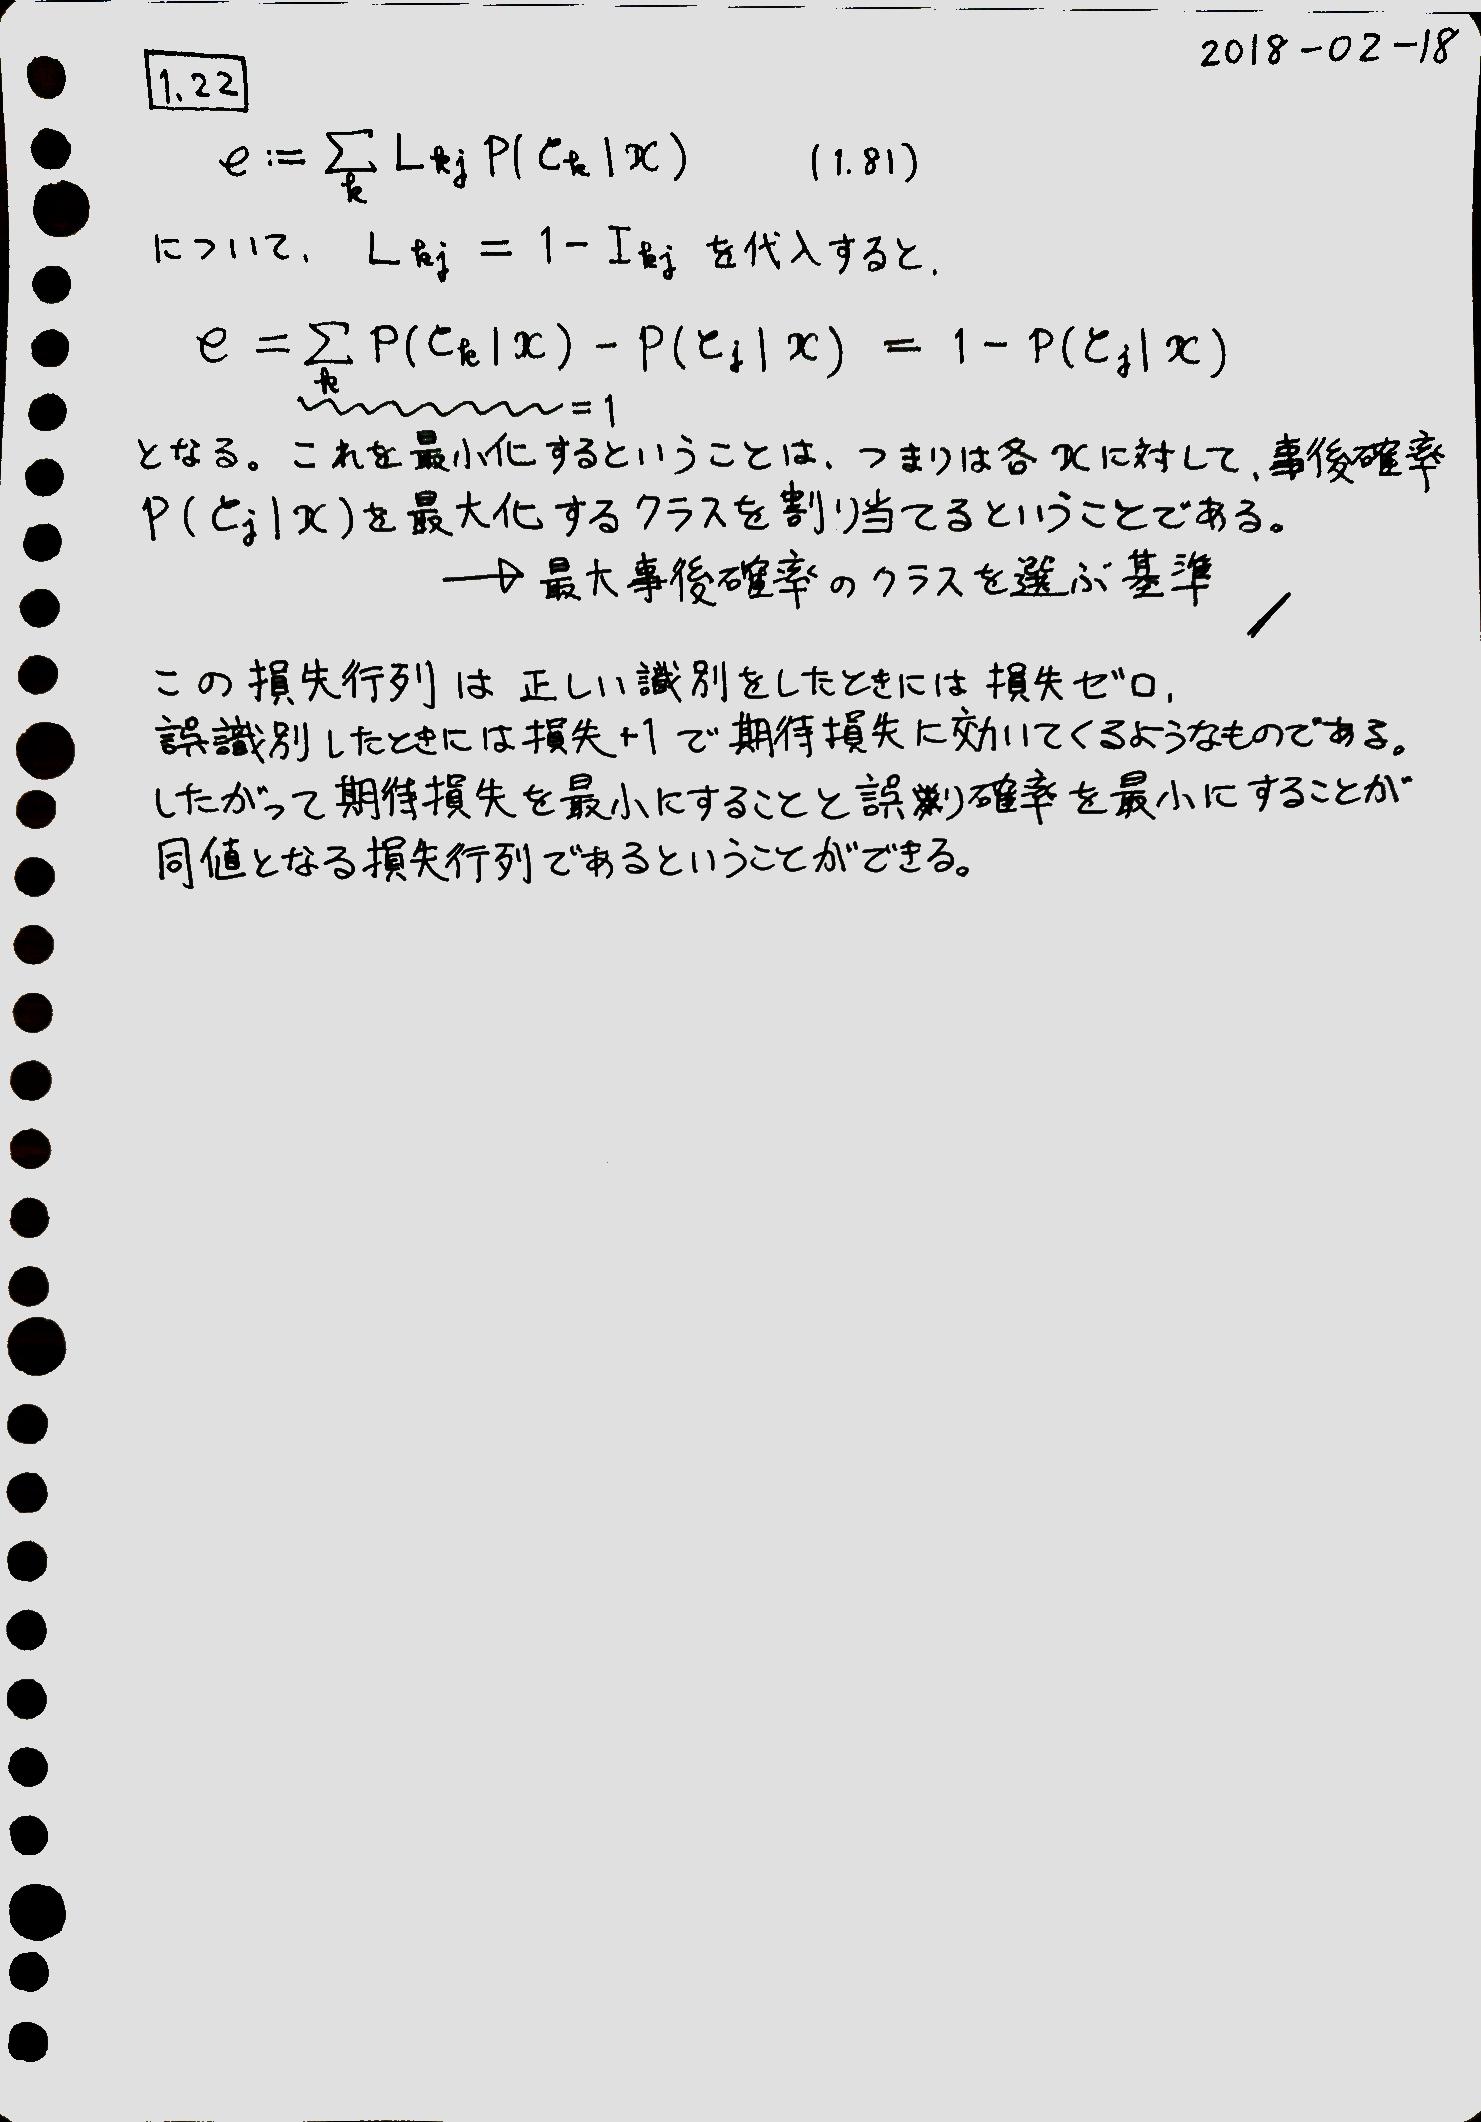 2018-02-18
1.22
e := Σ_k L_kj P(C_k|x) (1.81)
について, L_kj = 1 - I_kj を代入すると,
e = Σ_k P(C_k|x) - P(C_j|x) = 1 - P(C_j|x)
= 1
となる。これを最小化するということは, つまりは各xに対して, 事後確率
P(C_j|x)を最大化するクラスを割り当てるということである。
→ 最大事後確率のクラスを選ぶ基準
この損失行列は正しい識別をしたときには損失ゼロ,
誤識別したときには損失+1で期待損失に効いてくるようなものである。
したがって期待損失を最小にすることと誤り確率を最小にすることが
同値となる損失行列であるということができる。